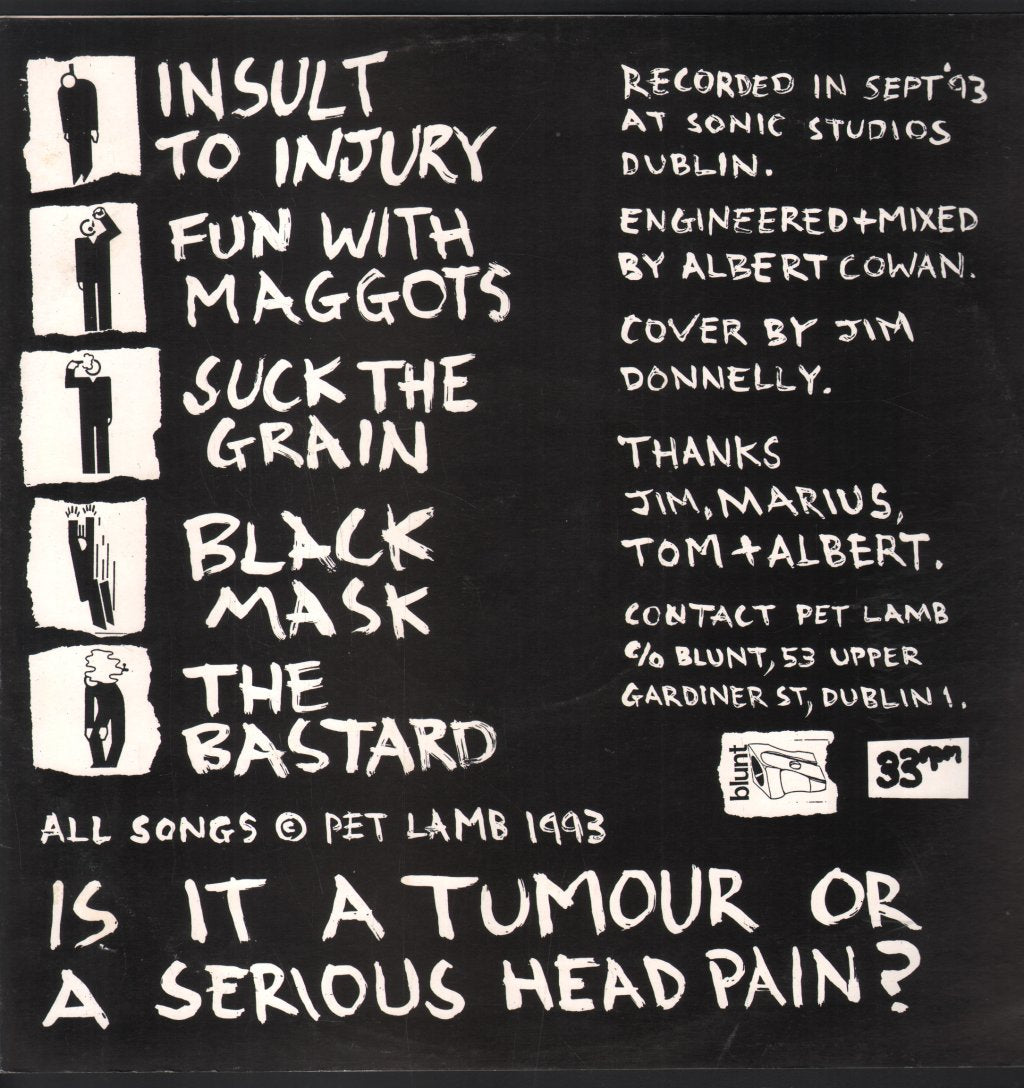 INSULT
TO INJURY
FUN WITH
MAGGOTS
SUCK THE
GRAIN
BLACK
MASK
THE
BASTARD
RECORDED IN SEPT '93
AT SONIC STUDIOS
DUBLIN.
ENGINEERED + MIXED
BY ALBERT COWAN.
COVER BY JIM
DONNELLY.
THANKS
JIM, MARIUS,
TOM + ALBERT.
CONTACT PET LAMB
C/O BLUNT, 53 UPPER
GARDINER ST, DUBLIN 1.
blunt
33rpm
ALL SONGS © PET LAMB 1993
IS IT A TUMOUR OR
A SERIOUS HEAD PAIN?